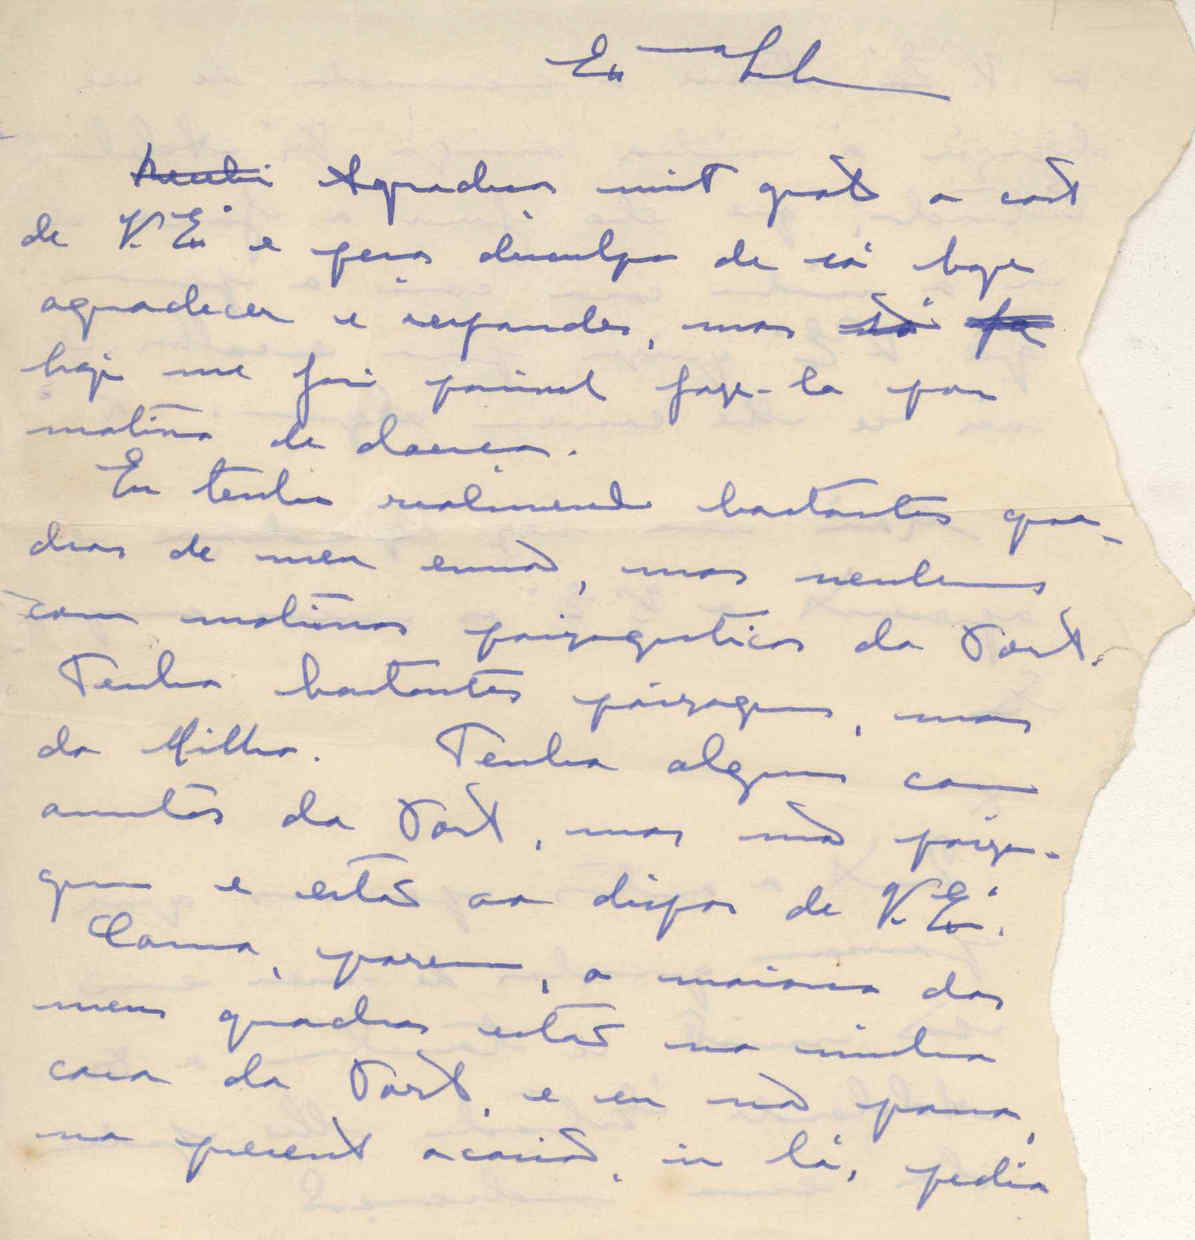 Ex.ma Senhora
Recebi Agradeço muito grato a carta
de V. Ex.ª e peço desculpa de só hoje
agradecer e responder, mas só
hoje me foi possivel faze-lo por
motivo de doença.
Eu tenho realmente bastantes qua-
dros de meu irmão, mas nenhuns
com motivos paizagisticos do Porto.
Tenho bastantes paizagens, mas
do Minho. Tenho alguns com
assuntos do Porto, mas não paiza-
gens e estão ao dispor de V. Ex.ª.
Como, porem, a maioria dos
meus quadros estão na minha
casa do Porto, e eu não posso,
na presente ocasião, ir lá, pedia